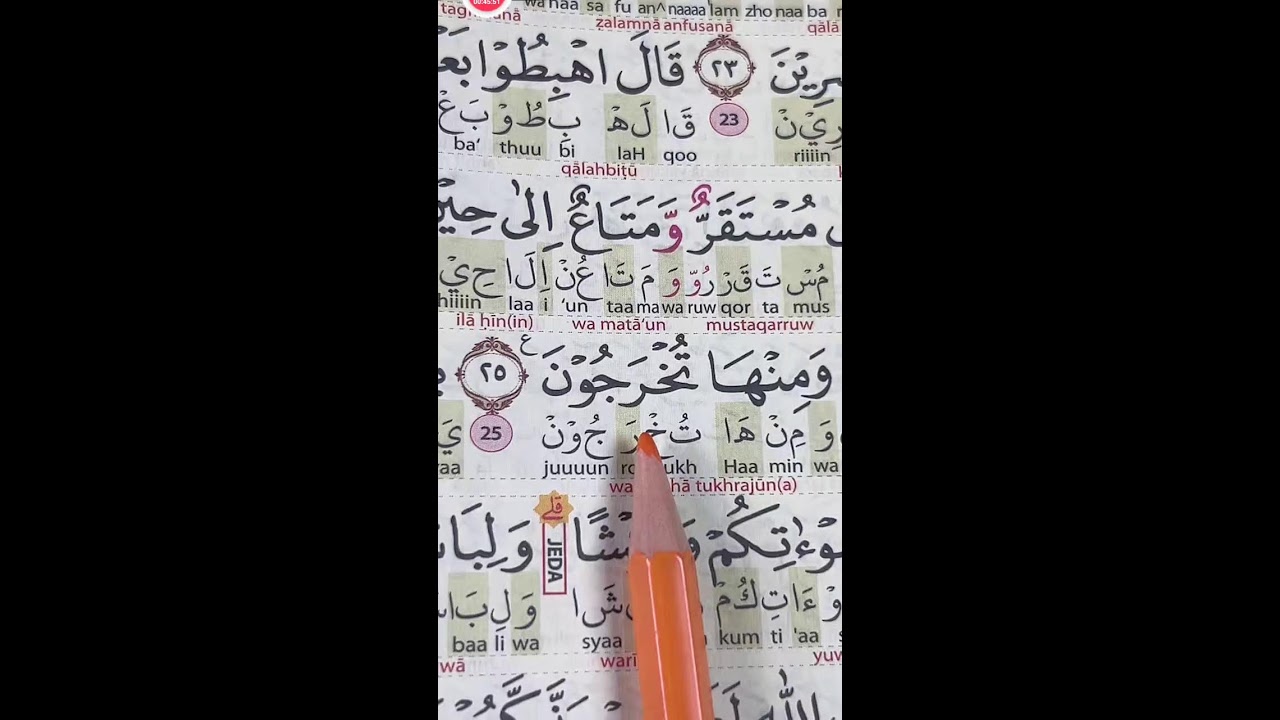 00:45:51
wa naa sa fu an^ naaaa lam zho naa ba
ẓalamnā anfusanā qālā
قَالَ اهْبِطُوْا ٢٣
قَا لَهْ بِ طُوْ بَعْ 23 رِيْنْ
ba‘ thuu bi laH qoo riiiin
qālahbiṭū
مُسْتَقَرٌّ وَّمَتَاعٌ اِلٰى حِيْنٍ
مُسْ تَ قَرْ رُوّ وَ مَ تَا عُنْ اِ لَا حِيْ
hiiiin laa i ‘un taa ma wa ruw qor ta mus
ilā ḥīn(in) wa matā‘un mustaqarruw
وَمِنْهَا تُخْرَجُوْنَ ٢٥ ع
وَ مِنْ هَا تُخْ رَ جُوْنْ 25 يَ
raa juuuun ukh Haa min wa
wa hā tukhrajūn(a)
قلى وَلِبَاسُ
JEDA
وْ ءَا تِ كُمْ شَا وَ لِ بَا
baa li wa syaa kum ti 'aa
wā wari yuw
اللّٰهِ